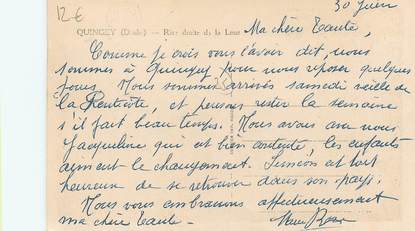 12€
30 Juin
QUINGEY (Doubs) — Rive droite de la Loue
Ma chère Tante,
Comme je crois vous l'avoir dit, nous
sommes à Quingey pour nous reposer quelques
jours. Nous sommes arrivés samedi veille de
la Pentecôte, et pensons rester la semaine
s'il fait beau temps. Nous avons avec nous
Jacqueline qui est bien contente, les enfants
aiment le changement. est tout
heureux de se retrouver dans son pays.
Nous vous embrassons affectueusement
ma chère tante -